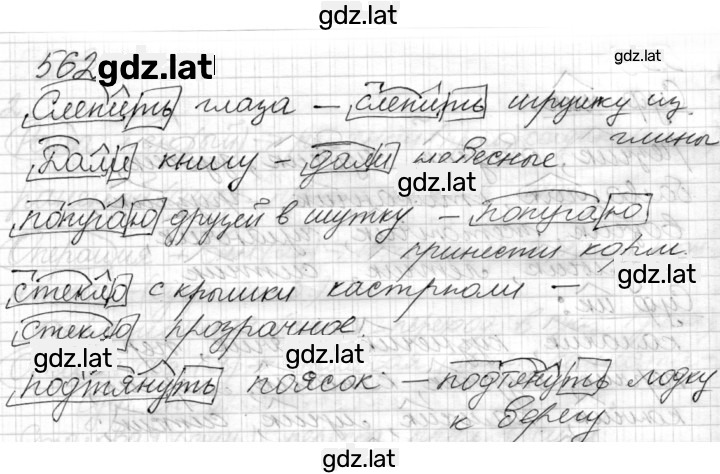 gdz.lat
562 gdz.lat gdz.lat
Слепить глаза – слепить игрушку из
глины
Дали книгу – дали небесные.
gdz.lat
попугаю друзей в шутку – попугаю
принести корм.
gdz.lat
стекло с крышки кастрюли –
стекло прозрачное.
gdz.lat gdz.lat
подтянуть поясок – подтянуть лодку
к берегу
gdz.lat